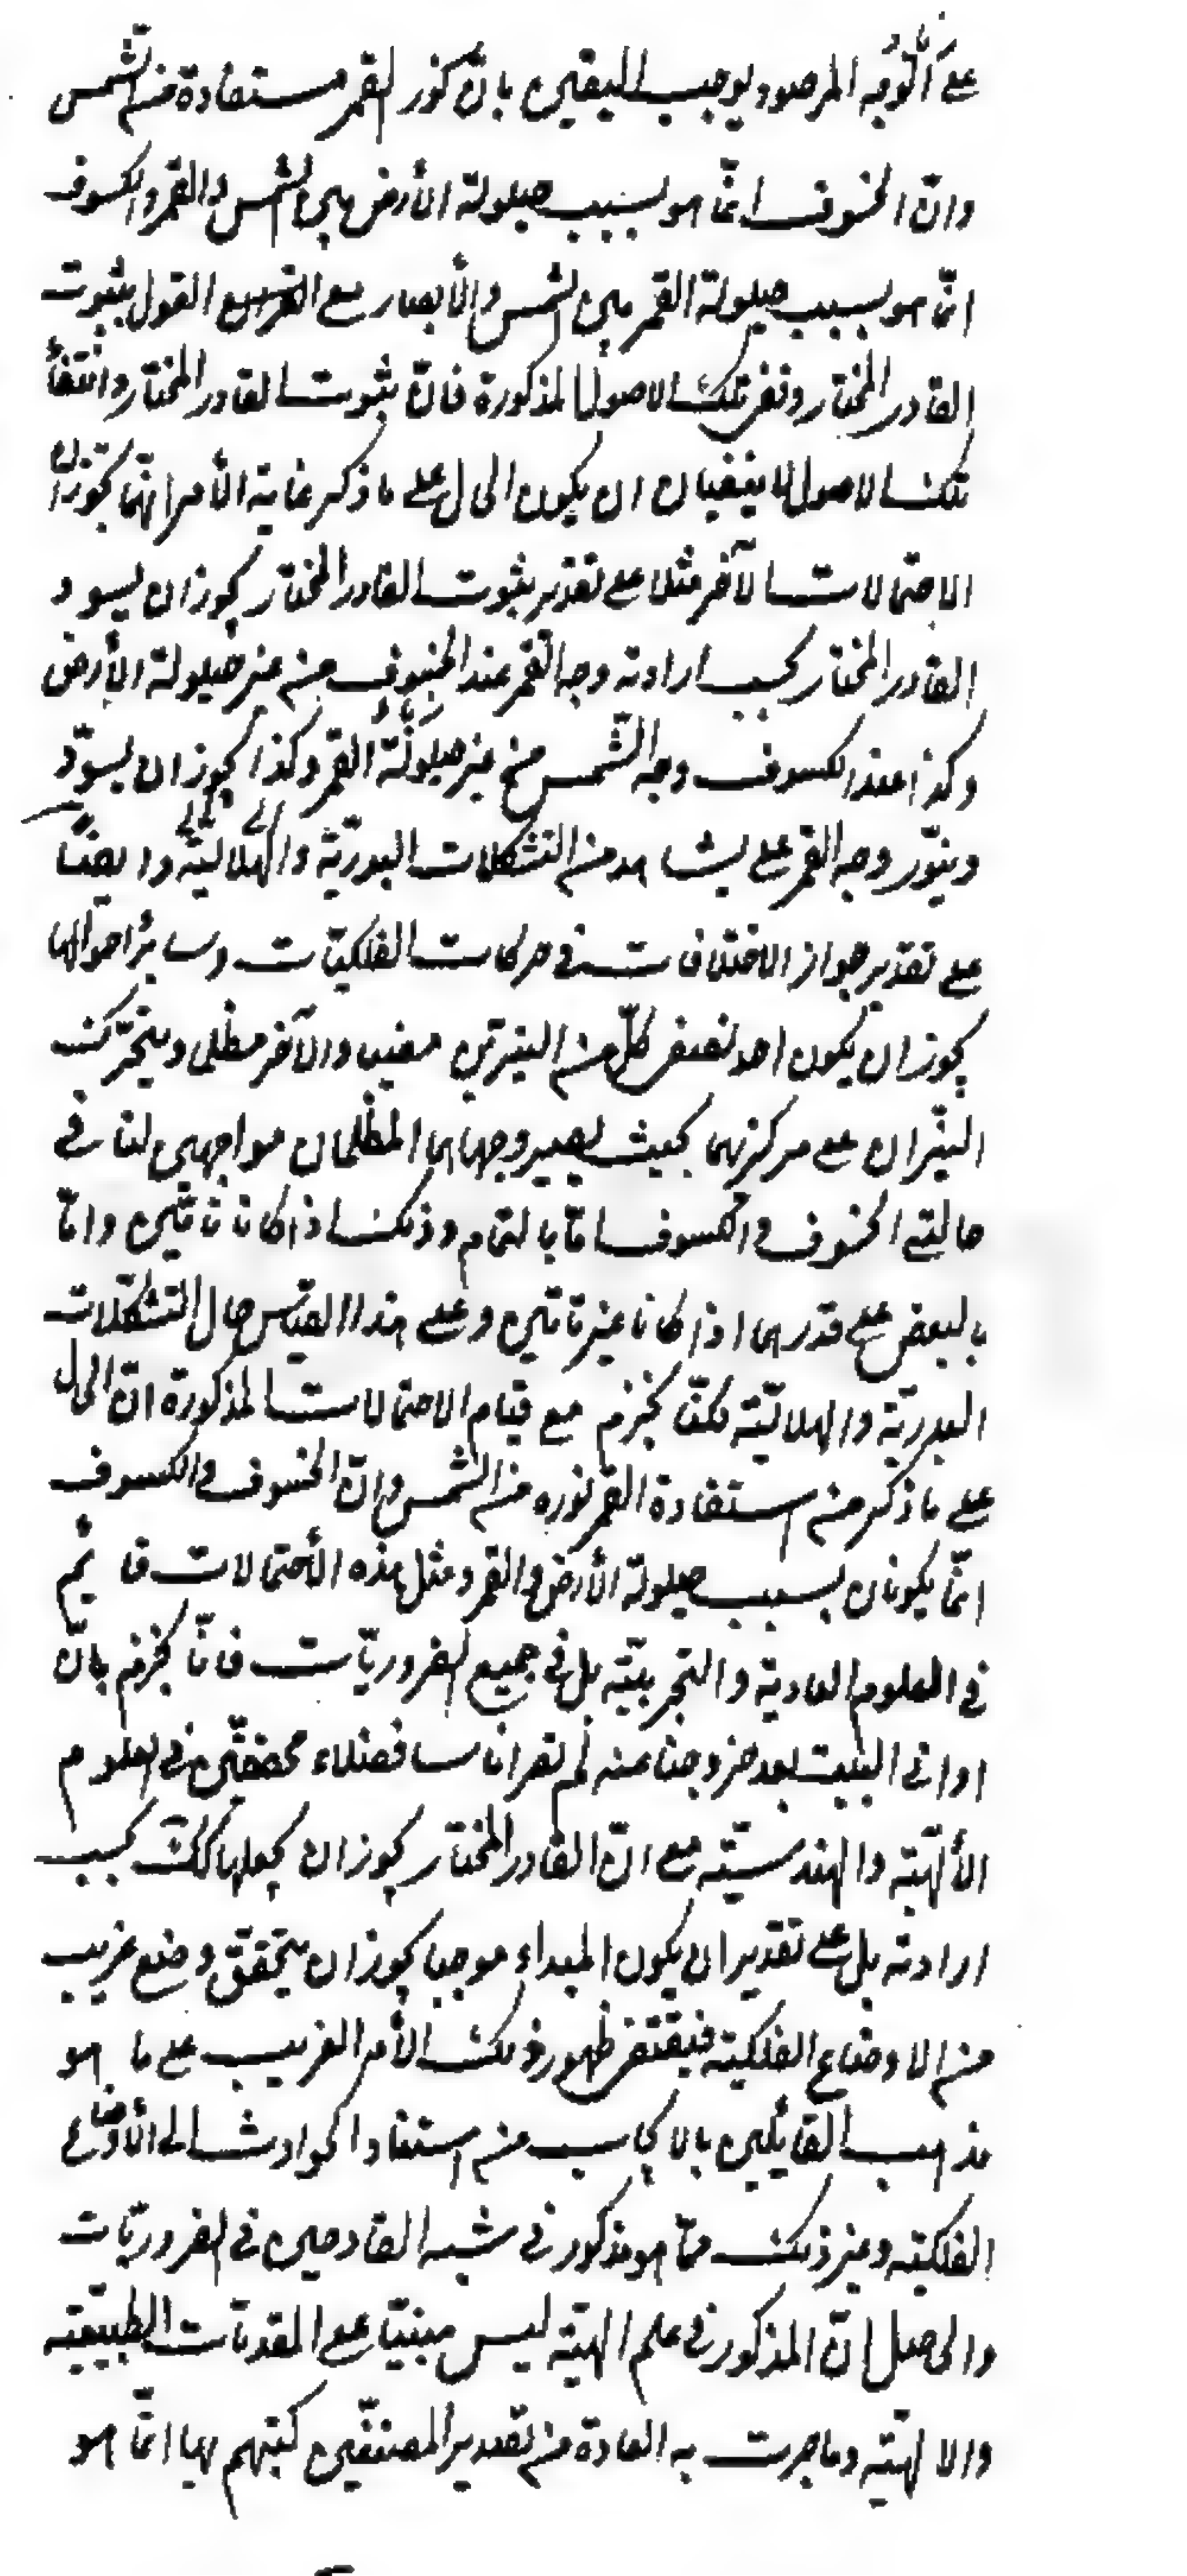 على الوجه المرصود يوجب اليقين بان نور القمر مستفادة من الشمس
وانّ الخسوف انّما هو بسبب حيلولة الأرض بين الشمس والقمر والكسوف
انّما هو بسبب حيلولة القمر بين الشمس والأبصار مع القول بثبوت
القادر المختار ونفى تلك الاصول المذكورة فانّ ثبوت القادر المختار وانتفأ
تلك الاصول لا ينفيان ان يكون الحال على ما ذكر غاية الأمر انّهما يجوّزان
الاحتمالات الآخر مثلا على تقدير ثبوت القادر المختار يجوز ان يسود
القادر المختار بحسب ارادته وجه القمر عند الخسوف من غير حيلولة الأرض
وكذا عند الكسوف وجه الشّمس من غير حيلولة القمر وكذا يجوز ان يسوّد
وينوّر وجه القمر على يشاهد من التشكلات البدريّة والهلاليّة وايضًا
على تقدير جواز الاختلافات فى حركات الفلكيّات وسائر احوالها
يجوز ان يكون احد نصفى كلّ من النيرين مضيئا والآخر مظلما ويتحرّك
النيّران على مركزيهما بحيث يصير وجهاهما المظلمان مواجهين لنا فى
حالتى الخسوف والكسوف امّا بالتمام وذلك اذا كانا تامّين وامّا
بالبعض على قدرهما اذا كانا غير تامّين وعلى هذا القياس حال التشكّلات
البدريّة والهلاليّة لكنّا نجزم مع قيام الاحتمالات المذكورة انّ الحال
على ما ذكر من استفادة القمر نوره من الشمس وانّ الخسوف والكسوف
انّما يكونان بسبب حيلولة الأرض والقمر ومثل هذه الأحتمالات قائم
فى العلوم العادية والتجربيّة بل فى جميع الضروريّات فانّا نجزم بانّ
اوانى البيت بعد خروجنا عنه لم تصر اناسا فضلاء محققين فى العلوم
الألهيّة والهندسيّة مع انّ القادر المختار يجوز ان يجعلها كذلك بحسب
ارادته بل على تقدير ان يكون المبداء موجبا يجوز ان يتحقق وضع غريب
من الاوضاع الفلكيّة فيقتضى ظهور ذلك الأمر الغريب على ما هو
مذهب القائلين بالايجاب من استناد الحوادث الى الأوضاع
الفلكيّة وغير ذلك ممّا هو مذكور فى شبه القادحين فى الضروريّات
والحاصل انّ المذكور فى علم الهيئة ليس مبنيّا على المقدمات الطبيعيّة
والالهيّة وما جرت به العادة من تصدير المصنفين كتبهم بها انّما هو